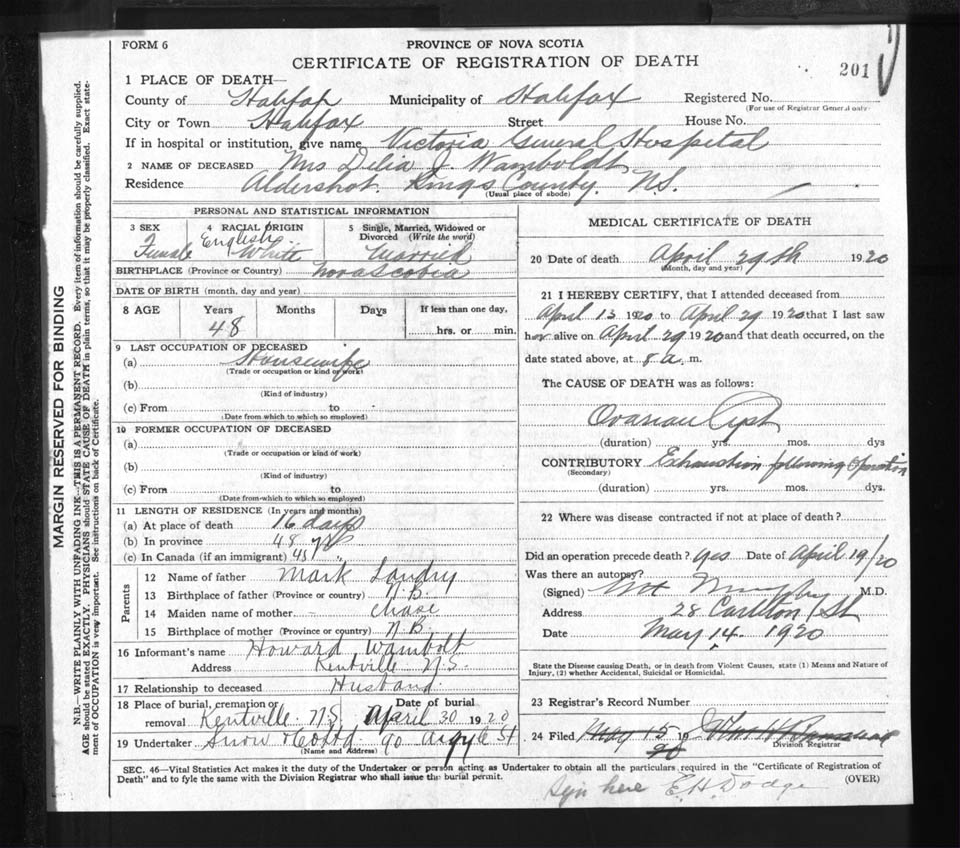 FORM 6
PROVINCE OF NOVA SCOTIA
CERTIFICATE OF REGISTRATION OF DEATH
201
1 PLACE OF DEATH—
County of Halifax Municipality of Halifax Registered No.
(For use of Registrar General only)
City or Town Halifax Street House No.
If in hospital or institution, give name Victoria General Hospital
2 NAME OF DECEASED Mrs Delia J. Wamboldt
Residence Aldershot. Kings County. N.S.
(Usual place of abode)
PERSONAL AND STATISTICAL INFORMATION
3 SEX 4 RACIAL ORIGIN 5 Single, Married, Widowed or Divorced (Write the word)
Female English White Married
BIRTHPLACE (Province or Country) Nova Scotia
DATE OF BIRTH (month, day and year)
8 AGE Years Months Days If less than one day,
48 hrs. or min.
9 LAST OCCUPATION OF DECEASED
(a) Housewife
(Trade or occupation or kind of work)
(b)
(Kind of industry)
(c) From to
(Date from which to which so employed)
10 FORMER OCCUPATION OF DECEASED
(a)
(Trade or occupation or kind of work)
(b)
(Kind of industry)
(c) From to
(Date from which to which so employed)
11 LENGTH OF RESIDENCE (In years and months)
(a) At place of death 16 days
(b) In province 48 yrs
(c) In Canada (if an immigrant) 48 "
Parents
12 Name of father Mark Landry
13 Birthplace of father (Province or country) N.B.
14 Maiden name of mother Chase
15 Birthplace of mother (Province or country) N.B.
16 Informant's name Howard Wambolt
Address Kentville N.S.
17 Relationship to deceased Husband.
18 Place of burial, cremation or removal Kentville N.S. Date of burial April 30 1920
19 Undertaker Snow & Co Ltd 90 Argyle St
(Name and Address)
MEDICAL CERTIFICATE OF DEATH
20 Date of death April 29th 1920
(Month, day and year)
21 I HEREBY CERTIFY, that I attended deceased from
April 13 1920 to April 29 1920 that I last saw
her alive on April 29 1920 and that death occurred, on the
date stated above, at 8 a. m.
The CAUSE OF DEATH was as follows:
Ovarian Cyst
(duration) yrs. mos. dys
CONTRIBUTORY Exhaustion following Operation
(Secondary)
(duration) yrs. mos. dys.
22 Where was disease contracted if not at place of death?
Did an operation precede death? Yes Date of April 19/20
Was there an autopsy?
(Signed) Murphy M.D.
Address 28 Carlton St
Date May 14. 1920
State the Disease causing Death, or in death from Violent Causes, state (1) Means and Nature of
Injury, (2) whether Accidental, Suicidal or Homicidal.
23 Registrar's Record Number
24 Filed May 15 19 20
Division Registrar
SEC. 46—Vital Statistics Act makes it the duty of the Undertaker or person acting as Undertaker to obtain all the particulars required in the "Certificate of Registration of
Death" and to fyle the same with the Division Registrar who shall issue the burial permit.
(OVER)
Sign here E.H. Dodge
MARGIN RESERVED FOR BINDING
N.B.—WRITE PLAINLY WITH UNFADING INK—THIS IS A PERMANENT RECORD. Every item of information should be carefully supplied.
AGE should be stated EXACTLY. PHYSICIANS should STATE CAUSE OF DEATH in plain terms, so that it may be properly classified. Exact state-
ment of OCCUPATION is very important. See instructions on back of Certificate.